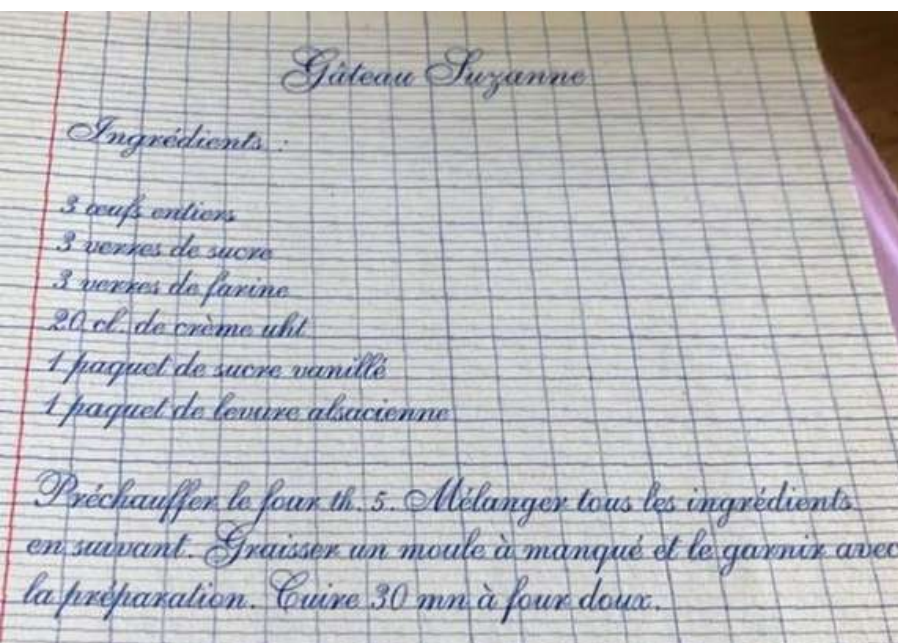 Gâteau Suzanne
Ingrédients :
3 œufs entiers
3 verres de sucre
3 verres de farine
20 cl. de crème uht
1 paquet de sucre vanillé
1 paquet de levure alsacienne
Préchauffer le four th. 5. Mélanger tous les ingrédients
en suivant. Graisser un moule à manqué et le garnir avec
la préparation. Cuire 30 mn à four doux.